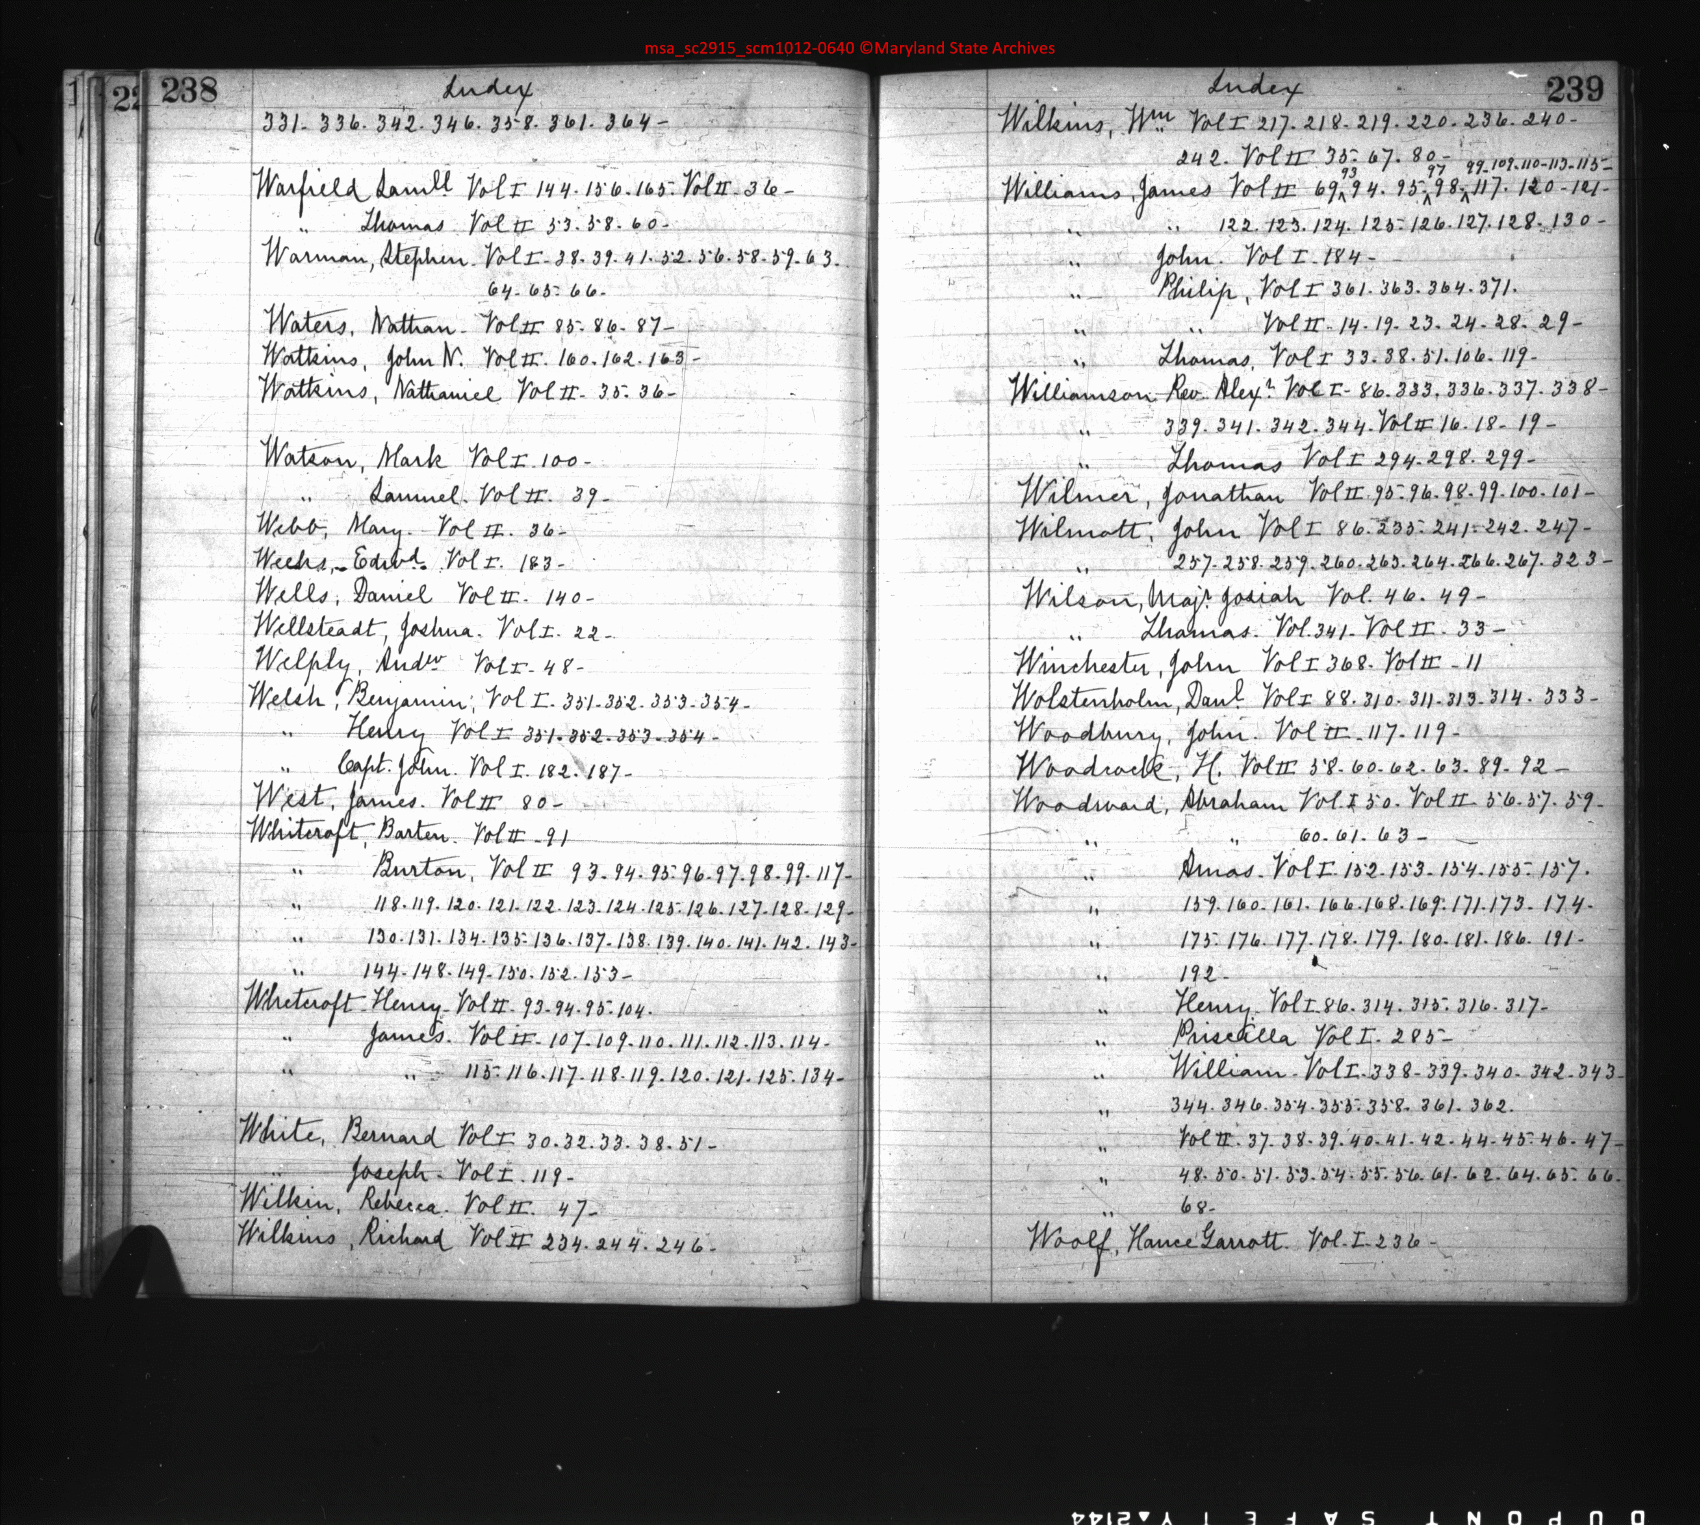 msa_sc2915_scm1012-0640 ©Maryland State Archives
238 Index
331- 336. 342. 346. 358. 361. 364-
Warfield Samll Vol I 144. 156. 165. Vol II. 36-
" Thomas Vol II 53. 58. 60-
Warman, Stephen. Vol I. 38. 39. 41. 52. 56. 58. 59. 63.
64. 65. 66.
Waters, Nathan. Vol II 85. 86. 87-
Watkins, John N. Vol II. 160. 162. 163-
Watkins, Nathaniel Vol II. 35. 36-
Watson, Mark Vol I. 100-
" Samuel. Vol II. 39-
Webb, Mary. Vol II. 36-
Weehs, Edwd. Vol I. 183-
Wells, Daniel Vol II. 140-
Wellsteadt, Joshua. Vol I. 22-
Welply, Andw Vol I. 48-
Welsh, Benjamin; Vol I. 351-352. 353-354-
" Henry Vol I 351. 352. 353. 354-
" Capt. John. Vol I. 182. 187-
West, James. Vol II 80-
Whitcroft, Barten. Vol II - 91
" Burton, Vol II 93. 94. 95. 96. 97. 98. 99. 117-
" 118. 119. 120. 121. 122. 123. 124. 125. 126. 127. 128. 129-
" 130. 131. 134. 135. 136. 137. 138. 139. 140. 141. 142. 143-
" 144. 148. 149. 150. 152. 153-
Whetcroft Henry Vol II. 93-94. 95. 104.
" James. Vol II. 107-109. 110. 111. 112. 113. 114-
" " 115. 116. 117. 118. 119. 120. 121. 125. 134-
White, Bernard Vol I 30. 32. 33. 38. 51-
" Joseph. Vol I. 119-
Wilkin, Rebecca. Vol II. 47-
Wilkins, Richard Vol II 234. 244. 246-
Index 239
Wilkins, Wm Vol I 217. 218. 219. 220. 236. 240-
242. Vol II 35. 67. 80-
93 97 99-109-110-113-115-
Williams, James Vol II 69 ^ 94. 95 ^ 98 ^ 117. 120-121-
" " 122. 123. 124. 125. 126. 127. 128. 130-
" John. Vol I. 184-
" Philip, Vol I 361. 363. 364. 371.
" " Vol II. 14. 19. 23. 24. 28. 29-
" Thomas, Vol I 33. 38. 51. 106. 119-
Williamson Rev. Alexr. Vol I. 86. 333. 336. 337. 338-
" 339. 341. 342. 344. Vol II 16. 18- 19-
" Thomas Vol I 294. 298. 299-
Wilmer, Jonathan Vol II. 95. 96. 98. 99. 100. 101-
Wilmott, John Vol I 86. 235. 241. 242. 247-
" 257. 258. 259. 260. 263. 264. 266. 267. 323-
Wilson, Majr. Josiah Vol. 46. 49-
" Thomas. Vol. 341. Vol II. 33-
Winchester, John Vol I 368. Vol II - 11
Wolstenholm, Danl. Vol I 88. 310. 311-313. 314. 333-
Woodbury, John. Vol II. 117. 119-
Woodcock, H. Vol II 58. 60. 62. 63. 89. 92-
Woodward, Abraham Vol I 50. Vol II. 56. 57. 59-
" " 60. 61. 63-
" Amos. Vol I. 152. 153. 154. 155. 157.
" 159. 160. 161. 166. 168. 169. 171. 173. 174-
" 175. 176. 177. 178. 179. 180. 181. 186. 191-
" 192-
" Henry. Vol I. 86. 314. 315. 316. 317-
" Priscilla Vol I. 285-
" William. Vol I. 338-339. 340. 342. 343-
" 344. 346. 354. 355. 358. 361. 362.
" Vol II. 37. 38. 39. 40. 41. 42. 44. 45. 46. 47-
" 48. 50. 51. 53. 54. 55. 56. 61. 62. 64. 65. 66-
" 68-
Woolf, Hance Garrott. Vol. I. 236-
DUPONT SAFETY▲2144